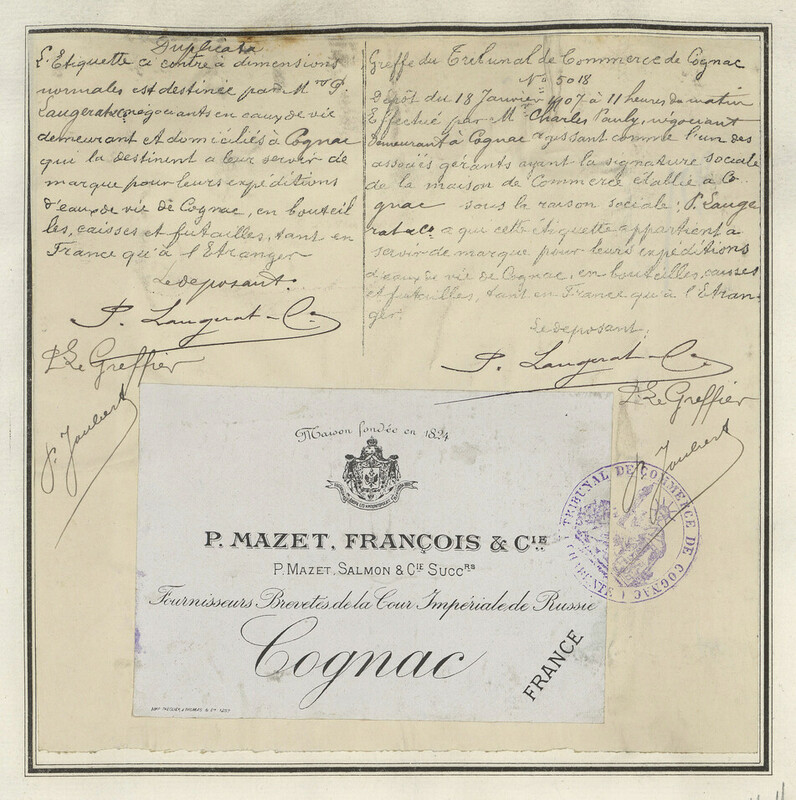 Duplicata
L'Etiquette ci contre à dimensions
normales est destinée par M.rs P.
Laugerat & Co négociants en eaux de vie
demeurant et domiciliés à Cognac
qui la destinent a leur servir de
marque pour leurs expéditions
d'eaux de vie de Cognac, en bouteil
les, caisses et futailles, tant en
France qu'à l'Etranger
Le deposant:
P. Laugerat & Co
P. Le Greffier
P. Joubert
Greffe du Tribunal de Commerce de Cognac
No 5018
Dépôt du 18 Janvier 1907 à 11 heures du matin
Effectué par Mr Charles Pauly, négociant
demeurant à Cognac agissant comme l'un des
associés gérants ayant la signature sociale
de la maison de Commerce établie à Co
gnac sous la raison sociale: P. Lauge
rat & Co a qui cette étiquette appartient à
servir de marque pour leurs expéditions
d'eaux de vie de Cognac, en bouteilles, caisses
et futailles, tant en France qu'à l'Etran-
ger.
Le deposant,
P. Laugerat & Co
P. Le Greffier
P. Joubert
Maison fondée en 1824
P. MAZET, FRANÇOIS & CIE
P. MAZET, SALMON & CIE SUCCRS
Fournisseurs Brevetés de la Cour Impériale de Russie
Cognac
FRANCE
TRIBUNAL DE COMMERCE DE COGNAC (CHARENTE)